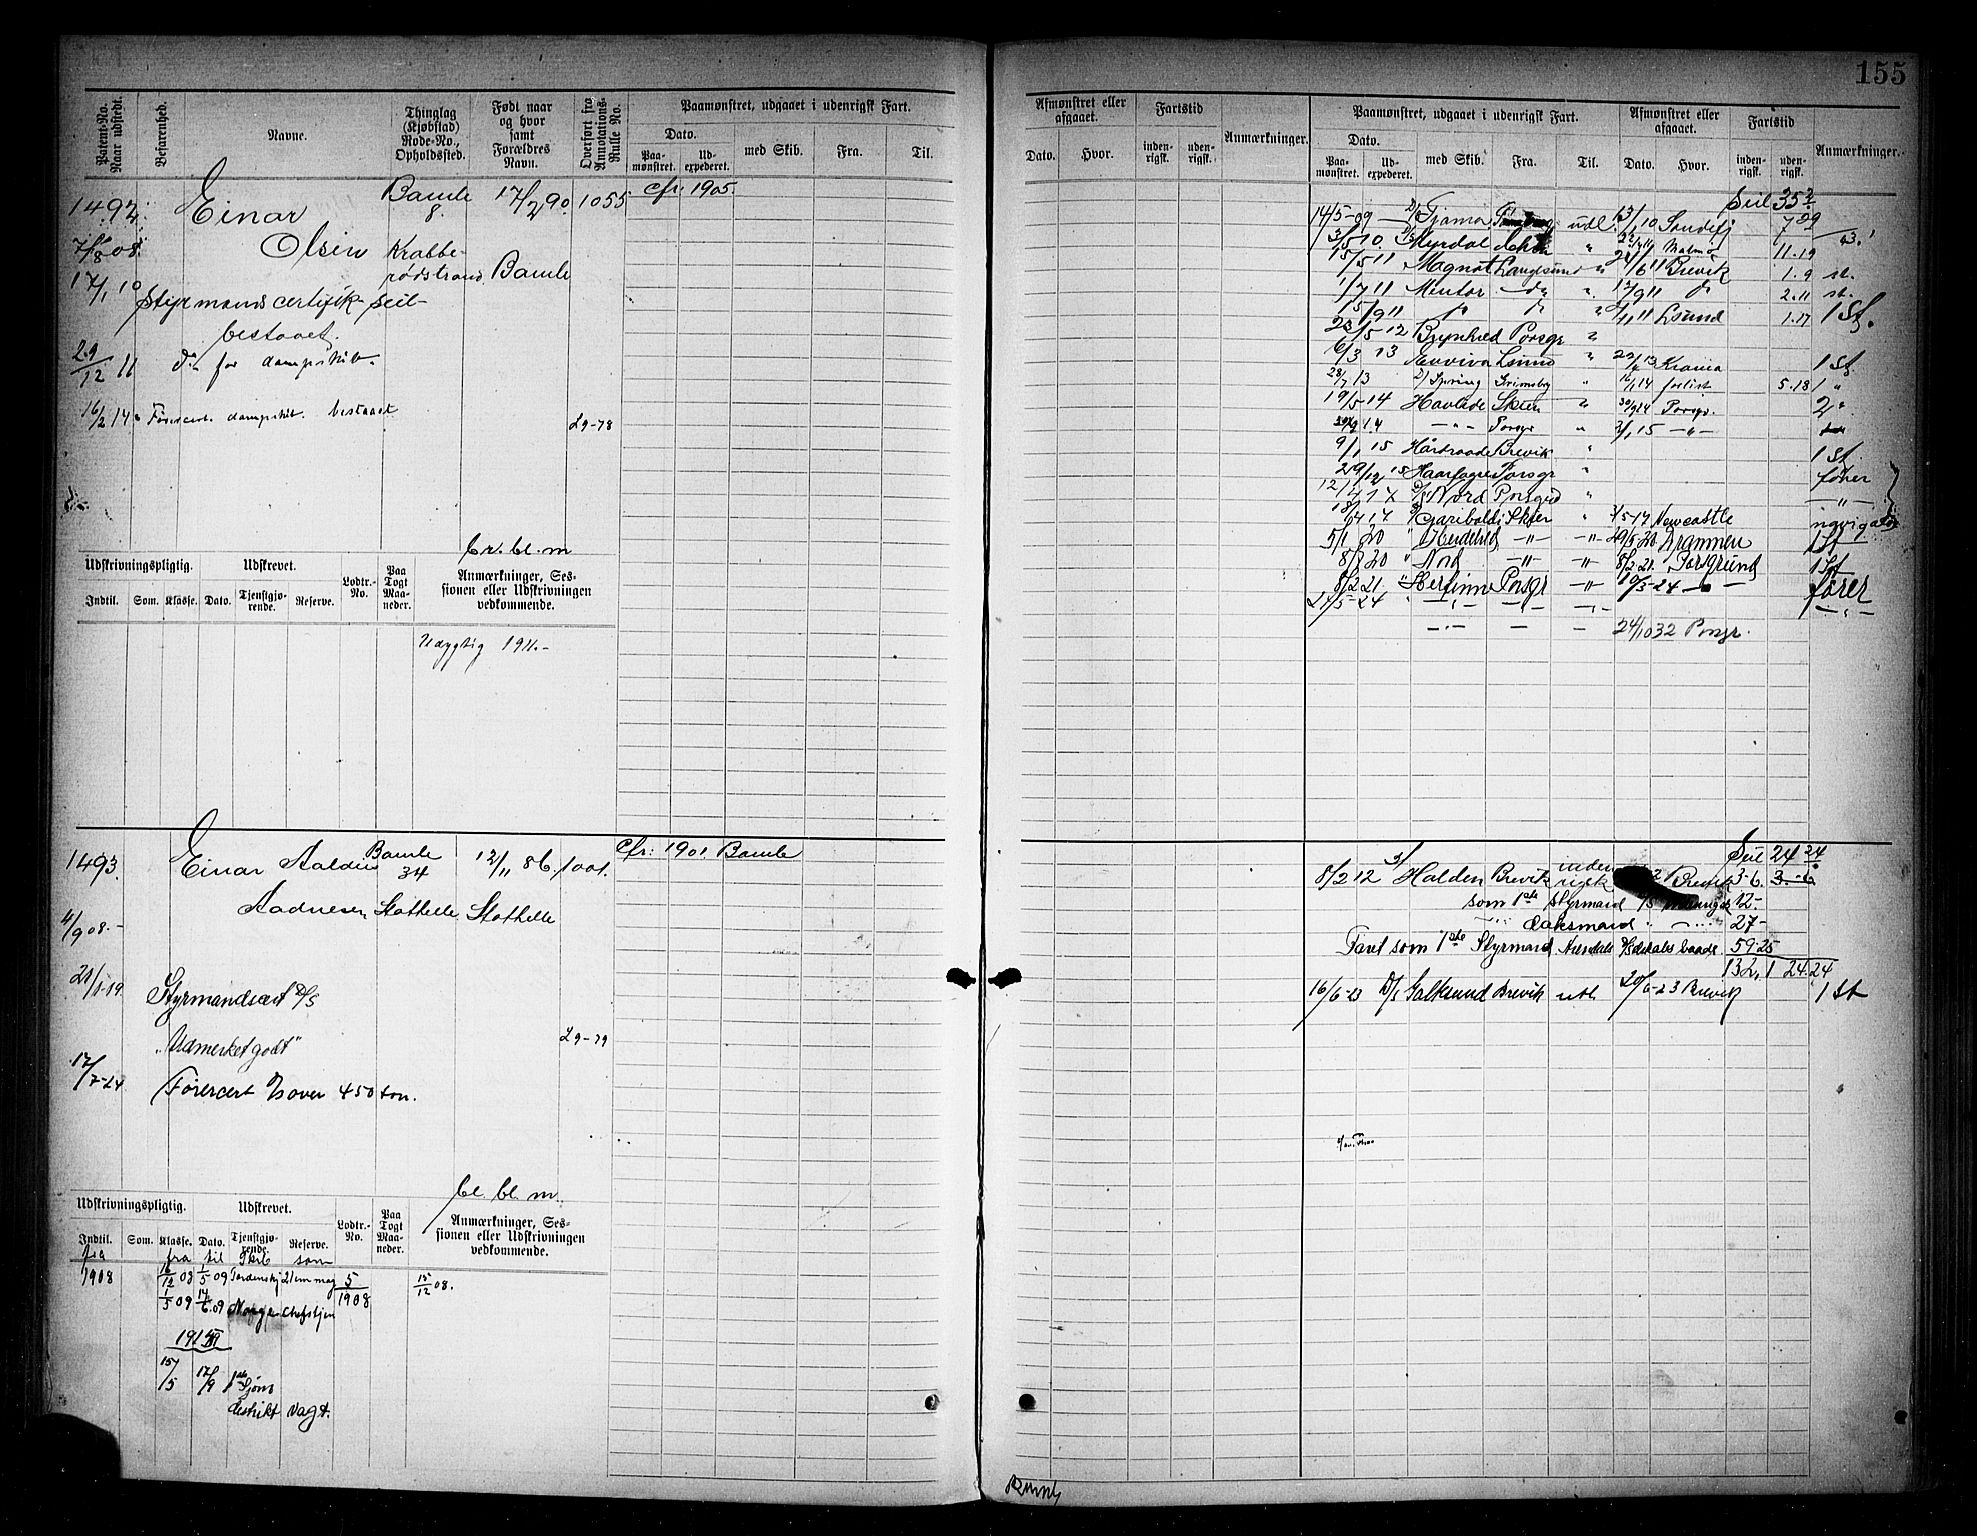 155
Patent-No. Naar udstedt.
Befarenhed.
Navne.
Thinglag (Kjøbstad) Rode-No., Opholdssted.
Født naar og hvor samt Forældres Navn.
Overført fra Annotations-Rulle No.
Paamønstret, udgaaet i udenrigsk Fart.
Dato.
Paa-mønstret.
Ud-expederet.
med Skib.
Fra.
Til.
Afmønstret eller afgaaet.
Dato.
Hvor.
Fartstid
inden-rigsk.
uden-rigsk.
Anmærkninger.
Paamønstret, udgaaet i udenrigsk Fart.
Dato.
Paa-mønstret.
Ud-expederet.
med Skib.
Fra.
Til.
Afmønstret eller afgaaet.
Dato.
Hvor.
Fartstid
inden-rigsk.
uden-rigsk.
Anmærkninger.
1492. Einar Bamle 8. 17/2 90. 1055 cfr: 1905.
Olsen Krabbe-
7/8 08. rødstrand Bamle
17/1 10 Styrmandscertifik seil-
bestaaet.
29/12 11 do for dampskib.
16/2 14. Førercert. dampskib. bestaaet
L9-78
br. bl. m
Udskrivningspligtig.
Udskrevet.
Lodtr.-No.
Paa Togt Maa-neder.
Anmærkninger, Ses-sionen eller Udskrivningen vedkommende.
Indtil. Som. Klasse. Dato. Tjenstgjø-rende. Reserve.
Udygtig 1911.-
Seil 35
14/5-09 Tjømø udl. 13/1 10 Sandefj 7 29
3/5 10. Myrdal Malmø 11.19
15/5 11 Magnat Langesund " 24/6 11 Brevik 1.9 st.
1/7 11 Mentor do " 17/9 11 do 2.11 st.
15/9 11 do do " 11 Lsund 1.17 1 St.
23/5 12 Brynhild Porsgr "
6/3 13 Evviva Lsund " 13 Krania 1 St
28/7 13 D/ Spring Grimsby " 16/1 14 forlist 5.18 1 "
19/5 14 Havlide Skien " 30/9 14 Porsgr. 2 "
14 -"- Porsgr " 2/1 15 -"-
9/1 15 Haardraade Brevik " 1 St
29/12 15 Haarfagre Porsgr " fører
12/4 17 D/S Nord Porsgrd " -"-
17 Garibaldi Skien " 3/5-17 Newcastle navigatør
5/1 20 " Heidelld -"- -"- 29/5-20 Drammen 1 St
8/8 20 " Nord -"- -"- 8/2-21. Porsgrund 1 St
8/2 21. " Herfinne Porsgr -"- 10/3-24 - " - fører
21/5-24 " -"- -"- -"- -"-
-"- - - 24/10 32 Porsgr.
1493. Einar Aaldin Bamle 34 12/11 86. 1001. cfr: 1901. Bamle
Aadnesen Stathelle. Stathelle
4/9 08.-
21/1-19. Styrmandscert D/S
"Udmerket godt"
L9-79
17/7-24 Førercert D/s over 450 ton.
bl. bl. m.
Udskrivningspligtig.
Udskrevet.
Lodtr.-No.
Paa Togt Maa-neder.
Anmærkninger, Ses-sionen eller Udskrivningen vedkommende.
Indtil. Som. Klasse. Dato. Tjenstgjø-rende. Reserve.
fra fra til Skib som
1908 16/12 08 1/5 09 Tordenskj 21 cm mag 5/1908 15/12 08.
1/5 09 14/6.09 Norge Chefstjen
15/5 17/9 1ste Sjøm
distrikt Vagt.
Seil 24 24
8/2 12 Halden Brevik inden-rigsk Brevik 3-6. 3.-6
som 1ste Styrmand 12-
daksmand 27-
Faret som 1ste Styrmand 59-25
132,1 24.24
16/6-23 D/s Galtesund Brevik utl 20/6-23 Brevik 1 St